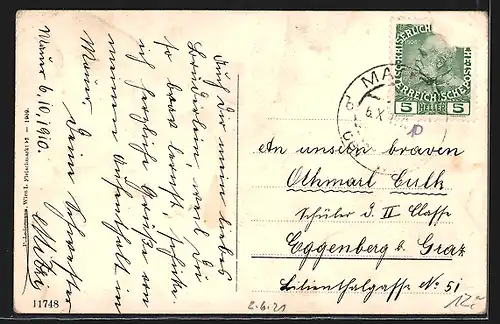 Auch dir mein liebes
Brüderlein, weil du
so brav lernst, schicke
ich herzliche Grüße von
meinem Aufenthalt in
Mauer.
Deine Schwester
Mauer 6./10. 1910.
P. Ledermann, Wien I. Fleischmarkt — 1909.
11748
KAISERLICH
1908
ÖSTERREICHISCHE POST
5 HELLER 5
MA
6.X
An unsern braven
Othmarl Eulk
Schüler d. II Classe
Eggenberg b. Graz
Lilienthalgasse No 51
2.6.21
12.-